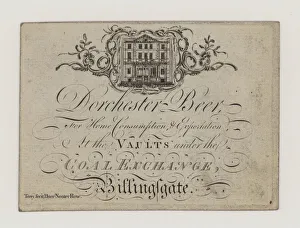 Dorchester Beer,
For Home Consumption & Exportation
At the VAULTS under the
COAL EXCHANGE,
Billingsgate.